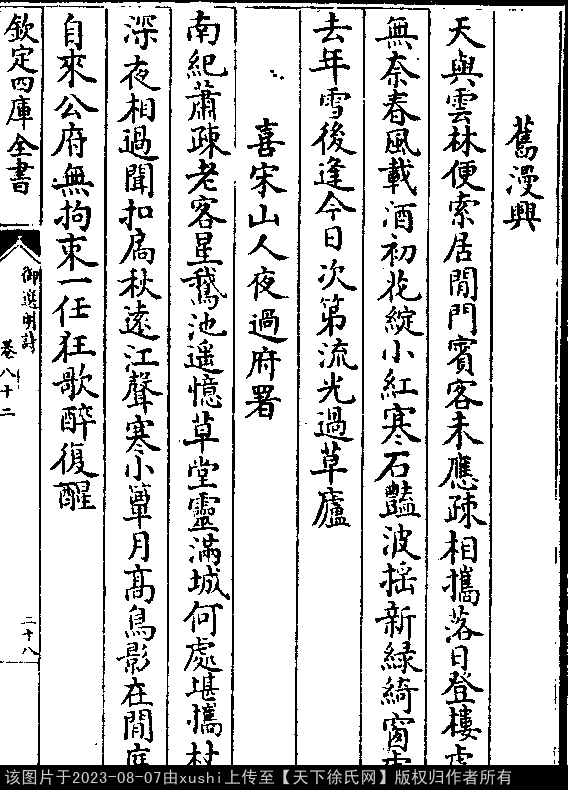 舊漫興
天與雲林便索居閒門賓客未應疎相攜落日登樓
無奈春風載酒初花綻小紅寒石豔波揺新緑綺窗
去年雪後逢今日次第流光過草廬
喜宋山人夜過府署
南紀蕭疎老客星鵝池遥憶草堂靈滿城何處堪攜
深夜相過聞扣扄秋遠江聲寒小簟月髙鳥影在閒
自來公府無拘束一任狂歌醉復醒
欽定四庫全書
御選明詩
卷八十二
二十八
该图片于2023-08-07由xushi上传至【天下徐氏网】版权归作者所有